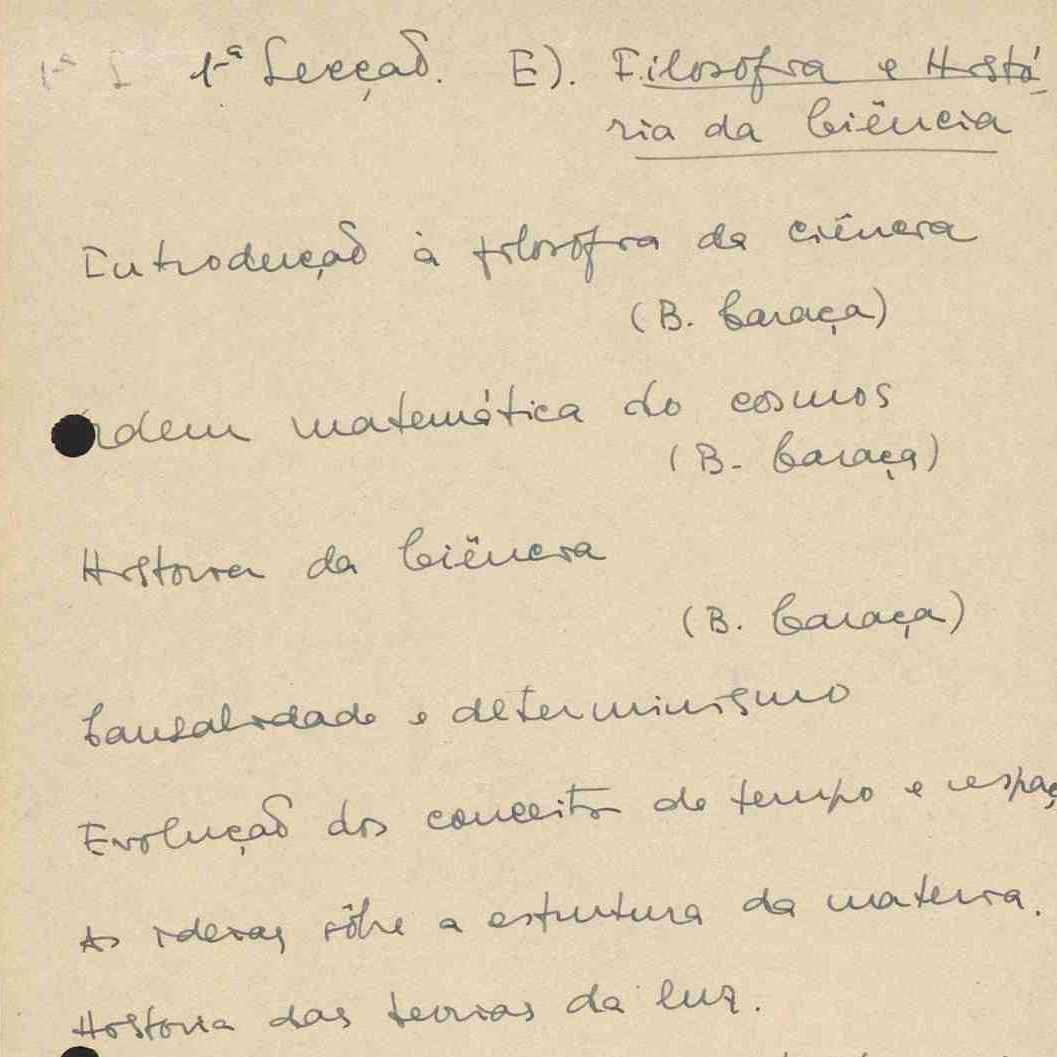 1ª S 1ª Secção. E). Filosofia e Histó-
ria da Ciência
Introdução à filosofia da ciência
(B. Caraça)
Ordem matemática do cosmos
(B. Caraça)
Historia da Ciência
(B. Caraça)
Causalidade e determinismo
Evolução dos conceitos de tempo e espaç
As ideias sôbre a estrutura da materia.
Historia das teorias da luz.